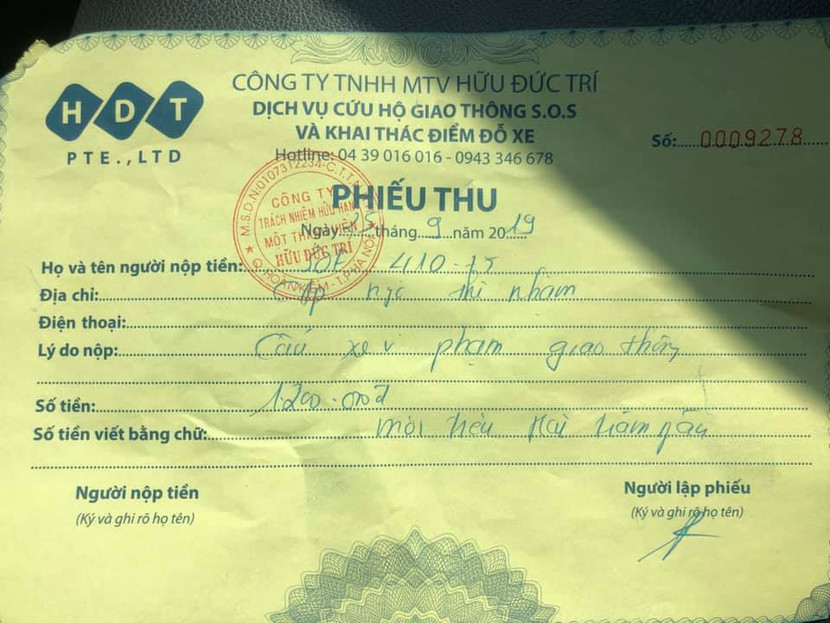 HDT
PTE.,LTD
CÔNG TY TNHH MTV HỮU ĐỨC TRÍ
DỊCH VỤ CỨU HỘ GIAO THÔNG S.O.S
VÀ KHAI THÁC ĐIỂM ĐỖ XE
Hotline: 04 39 016 016 - 0943 346 678
Số: 0009278
PHIẾU THU
Ngày 25 tháng 9 năm 2019
M.S.D.N:0107312234-C.T.T
CÔNG TY
TRÁCH NHIỆM HỮU HẠN
MỘT THÀNH VIÊN
HỮU ĐỨC TRÍ
Q.HOÀN KIẾM - T.P HÀ NỘI
Họ và tên người nộp tiền: 30E 410-75
Địa chỉ: thì nhậm
Điện thoại:
Lý do nộp: Cẩu xe vi phạm giao thông
Số tiền: 1.200.000đ
Số tiền viết bằng chữ: một triệu hai trăm
Người nộp tiền
(Ký và ghi rõ họ tên)
Người lập phiếu
(Ký và ghi rõ họ tên)